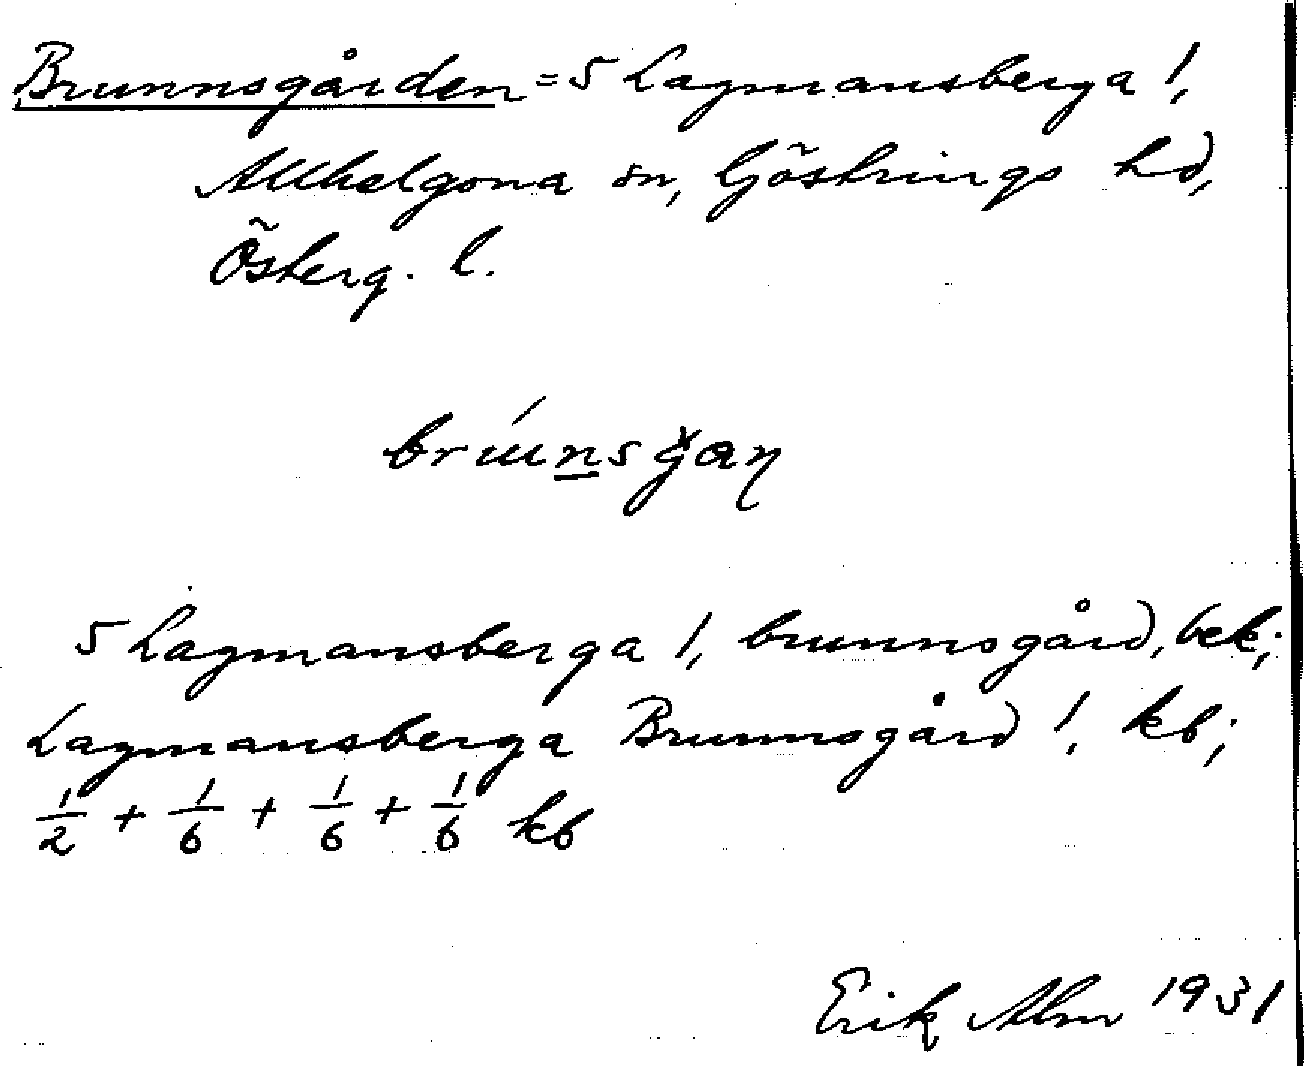 Brunnsgården = 5 Lagmansberga 1,
Allhelgona sn, Göstrings hd,
Österg. l.
5 Lagmansberga 1, brunnsgård, bek;
Lagmansberga Brunnsgård 1, kb;
1/2 + 1/6 + 1/6 + 1/6 kb
Erik Alm 1931